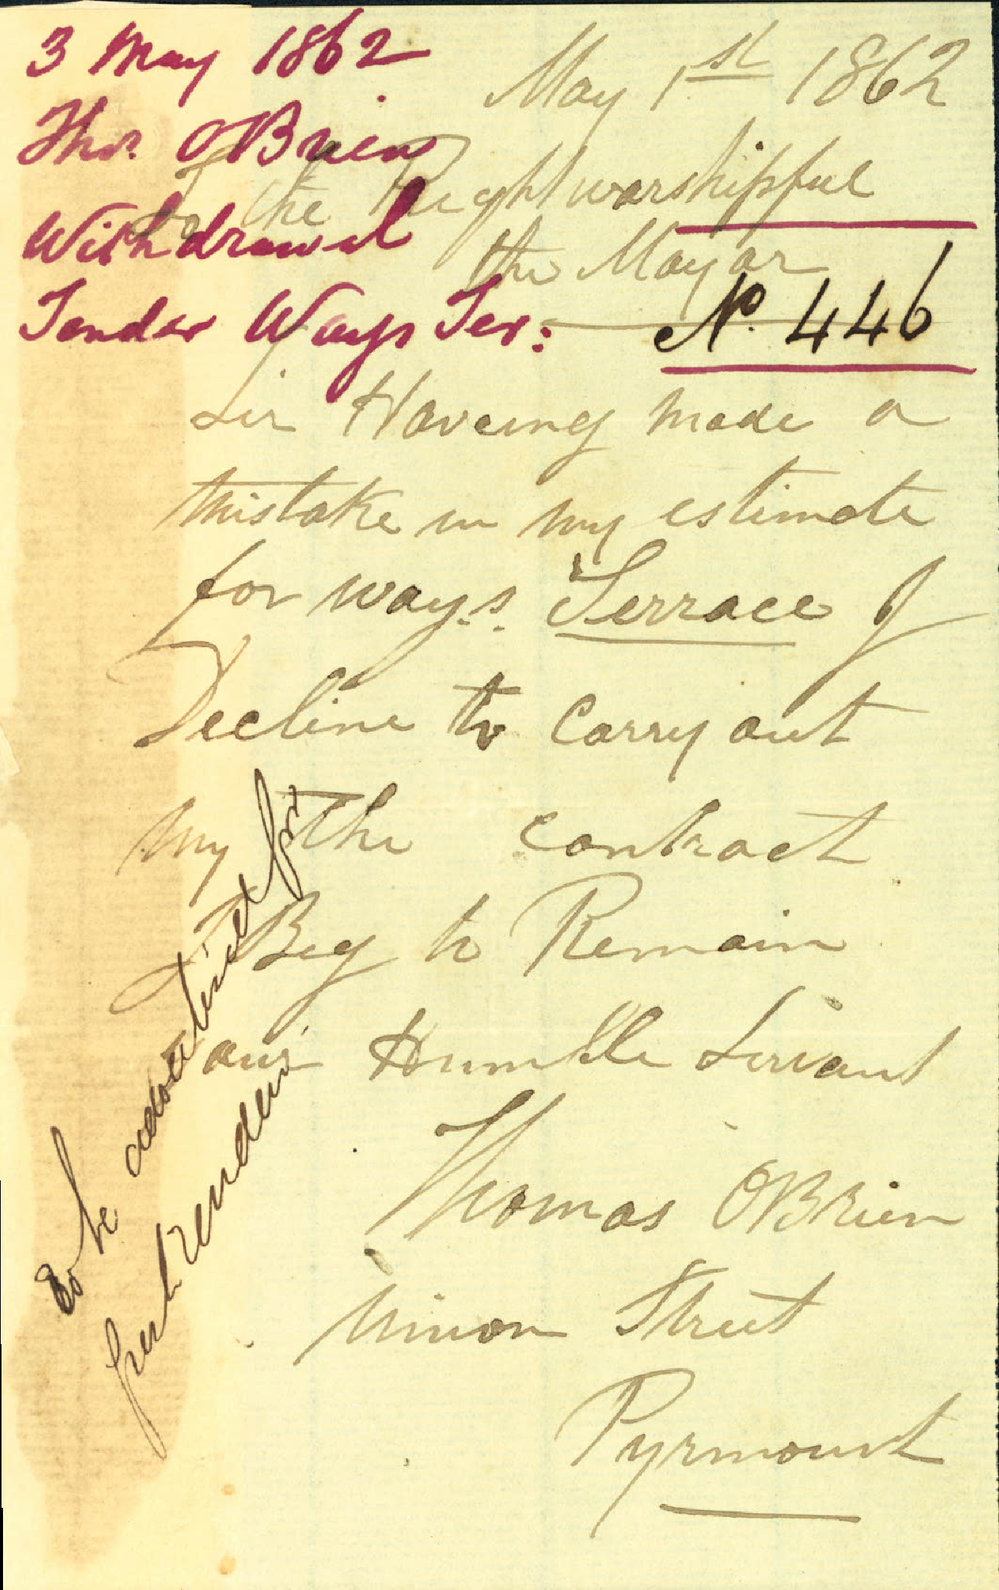 3 May 1862
Thos. OBrien
Withdrawal
Tender Ways Ter:
May 1st 1862
To the Right worshipful
the Mayor
No. 446
Sir Haveing made a
mistake in my estimate
for ways. Terrace I
Decline to Carry out
my the contract
I Beg to Remain
your Humble Servant
Thomas OBrien
Union Street
Pyrmont
To be advertised for
fresh Tenders